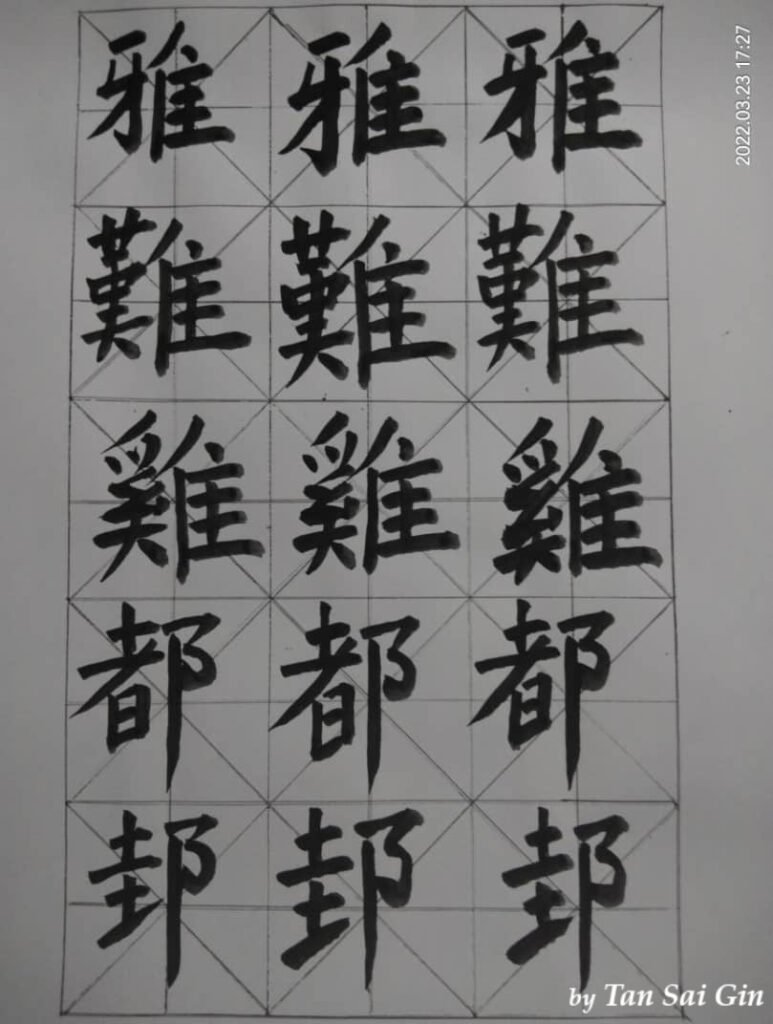 雅 雅 雅
難 難 難
雞 雞 雞
都 都 都
邽 邽 邽
2022.03.23 17:27
by Tan Sai Gin